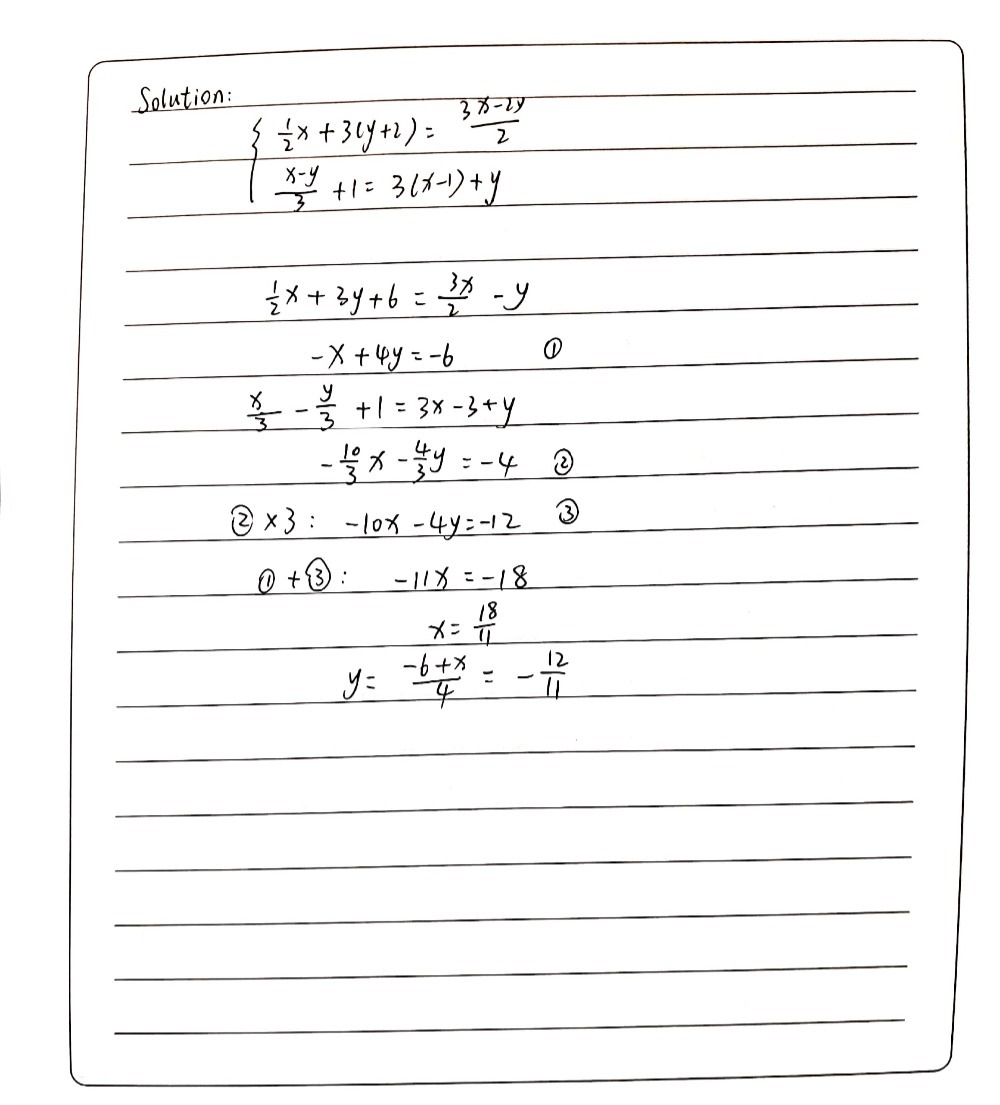 Solution:
{ 1/2 x + 3(y+2) = (3x-2y)/2
(x-y)/3 + 1 = 3(x-1) + y
1/2 x + 3y + 6 = 3x/2 - y
-x + 4y = -6 ①
x/3 - y/3 + 1 = 3x - 3 + y
-10/3 x - 4/3 y = -4 ②
② × 3 : -10x - 4y = -12 ③
① + ③ : -11x = -18
x = 18/11
y = (-6+x)/4 = -12/11